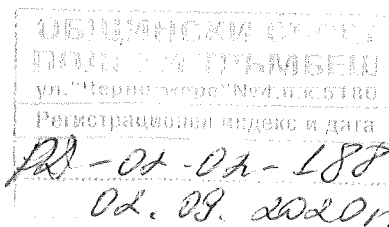 ОБЩИНСКИ СЪВЕТ
ПОЛСКИ ТРЪМБЕШ
ул."Черно море"№4,п.к.5180
Регистрационен индекс и дата
РД-02-02-188
02.09.2020г.